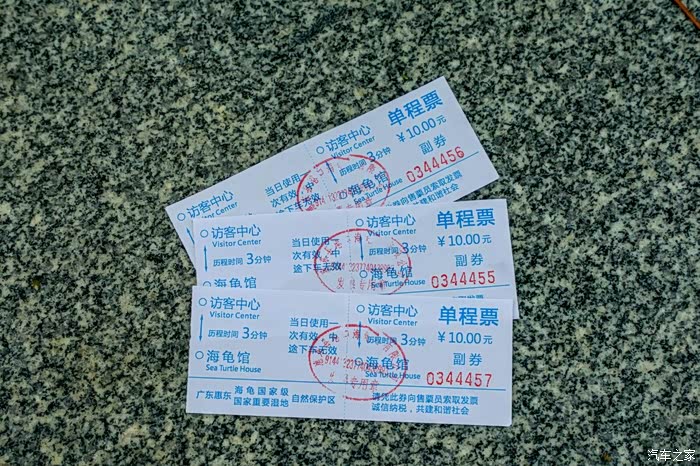 单程票
访客中心
Visitor Center
￥10.00元
历程时间 3分钟
副券
当日使用一
次有效，中
途下车无效
海龟馆
Sea Turtle House
0344456
访客中心
Visitor Center
券向售票员索取发票
共建和谐社会
访客中心
Visitor Center
历程时间 3分钟
当日使用一
次有效，中
途下车无效
访客中心
Visitor Center
历程时间 3分钟
海龟馆
Sea Turtle House
单程票
￥10.00元
副券
0344455
访客中心
Visitor Center
历程时间 3分钟
海龟馆
Sea Turtle House
当日使用一
次有效，中
途下车无效
访客中心
Visitor Center
历程时间 3分钟
海龟馆
Sea Turtle House
单程票
￥10.00元
副券
0344457
广东惠东 海龟国家级 自然保护区
国家重要湿地
请凭此券向售票员索取发票
诚信纳税，共建和谐社会
汽车之家